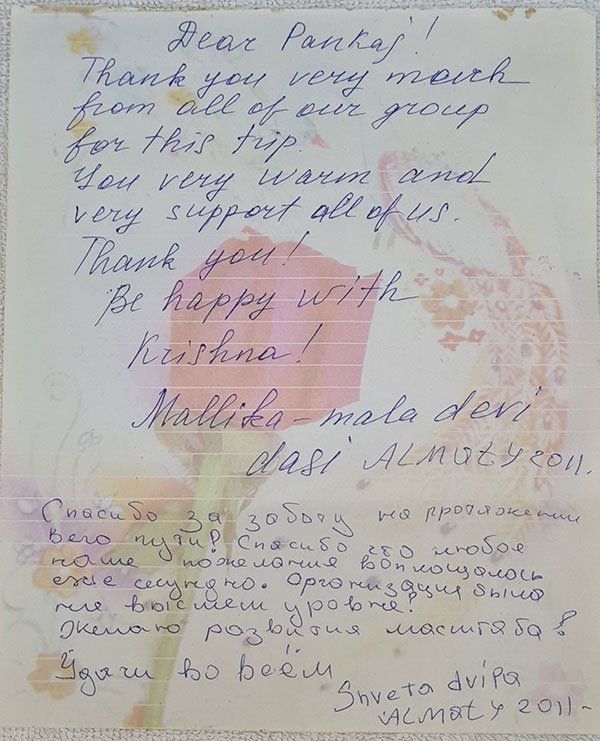 Dear Pankaj!
Thank you very much
from all of our group
for this trip.
You very warm and
very support all of us.
Thank you!
Be happy with
Krishna!
Mallika-mala devi
dasi ALMATY 2011.
Спасибо за заботу на протяжении
всего пути! Спасибо что любое
наше пожелание воплощалось
еже секундно. Организация была
на высшем уровне!
Желаю развития масштаба!
Удачи во всём
Shveta dvipa
ALMATY 2011-